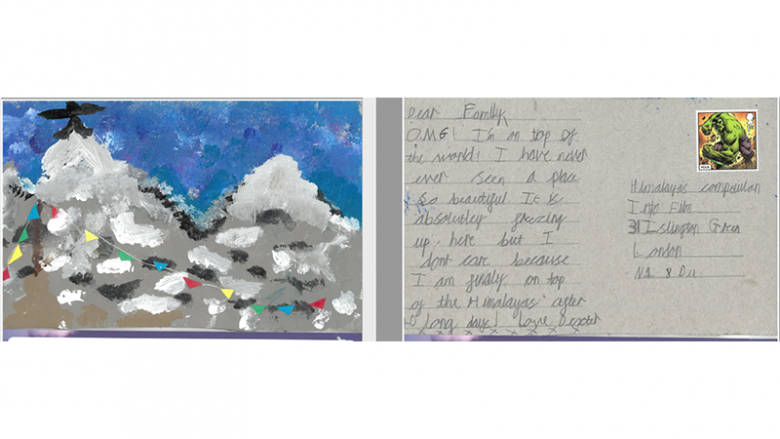 Dear Family,
O.M.G! I'm on top of
the world! I have never
ever seen a place
so beautiful. It is
absolutley freezing
up here but I
dont care because
I am finaly on top
of the Himalayas after
long days! Love Dexter
x x x x x x x x x x
Himalayas competition
Into Film
31 Islington Green
London
N1 8DU